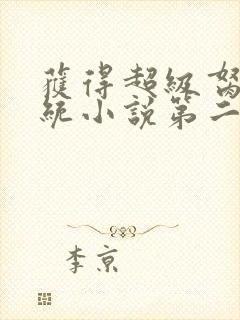 獲得超級
統小說第二
李京